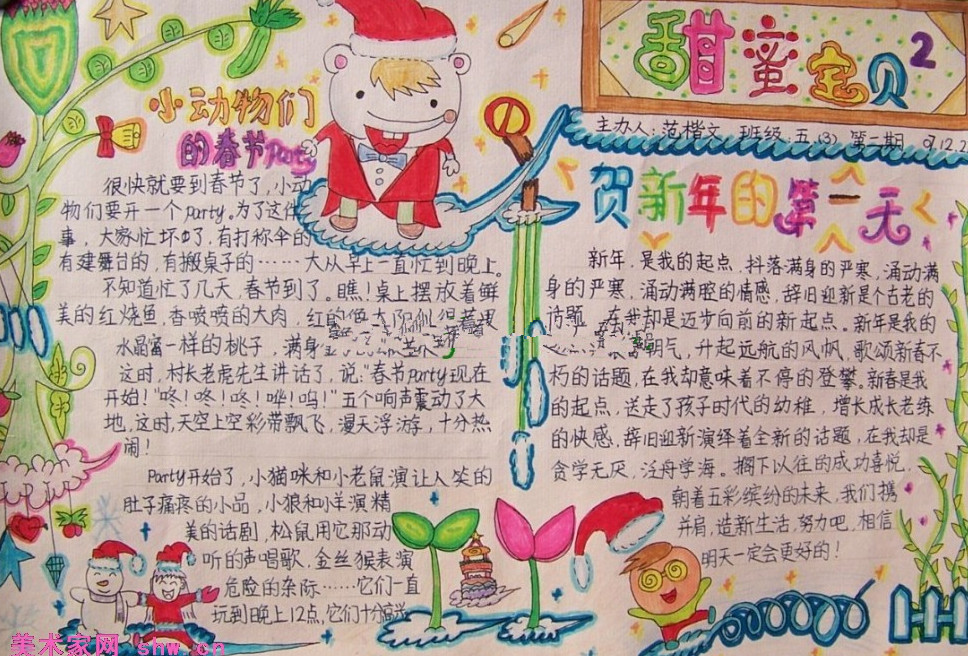 甜蜜宝贝 2
主办人:范楷文 班级:五(3) 第二期
小动物们
的春节Party
很快就要到春节了,小动
物们要开一个party。为了这件
事,大家忙坏了,有打称伞的
有建舞台的,有搬桌子的……大从早上一直忙到晚上。
不知道忙了几天,春节到了。瞧!桌上摆放着鲜
美的红烧鱼,香喷喷的大肉,红的
水晶富一样的桃子,满身
这时,村长老虎先生讲话了,说:"春节party现在
开始!"咚!咚!咚!咻!呜!"五个响声震动了大
地,这时,天空上空彩带飘飞,漫天浮游,十分热
闹!
Party开始了,小猫咪和小老鼠演让人笑的
肚子痛疼的小品,小狼和小羊演精
美的话剧,松鼠用它那动
听的声唱歌,金丝猴表演
危险的杂际……它们一直
玩到晚上12点,它们十分高兴
贺新年的第一天
新年,是我的起点,抖落满身的严寒,涌动满
身的严寒,涌动满腔的情感,辞旧迎新是个古老的
诗题,在我却是迈步向前的新起点。新年是我的
明气,升起远航的风帆,歌颂新春不
朽的话题,在我却意味着不停的登攀。新春是我
的起点,送走了孩子时代的幼稚,增长成长老练
的快感,辞旧迎新演绎着全新的话题,在我却是
贪学无厌,泛舟学海。搁下以往的成功喜悦,
朝着五彩缤纷的未来,我们携
并肩,造新生活,努力吧,相信
明天一定会更好的!
美术家网 shw.cn